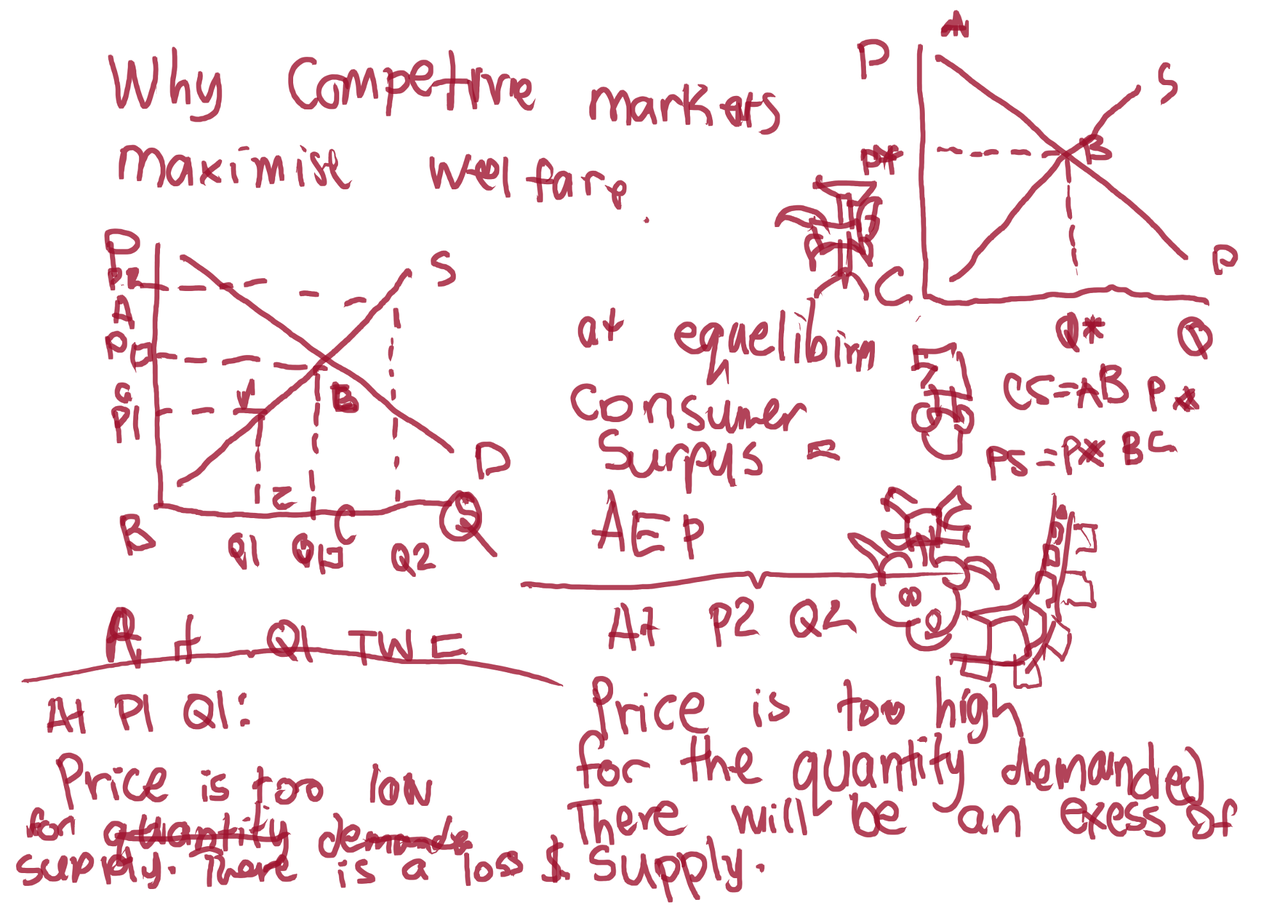 Why Competive markers
maximise welfare.
P
P2
A
P1
S
D
B
Q1
C
Q2
Q
A
P
S
P*
B
C
D
Q*
Q
at equelibirm
Consumer
Surpus =
AEP
CS=AB P*
PS=P* BC
At Q1 TWE
At P1 Q1:
Price is too low
for quantity demande
supply. There is a loss $
At P2 Q2
Price is too high
for the quantity demanded
There will be an exess of
Supply.